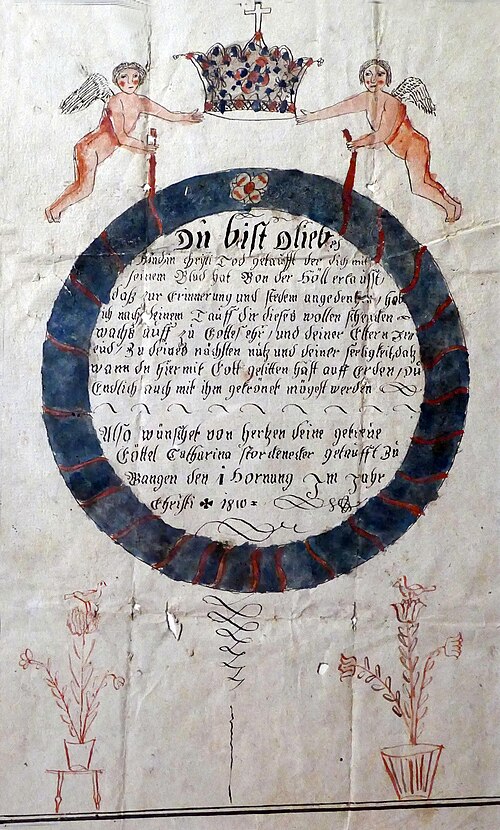 Du bist O liebes
Kind in Christi Tod getaufft der dich mit
seinem Blud hat Von der Höll erlausst
daß zur Erinnerung und stedem angedencken / hab
ich nach deinem Tauff dir dieses wollen schencken
wachs auff zu Gottes ehr / und deiner Eltern
freud / Zu deines nächsten nutz und deiner seeligkeit, daß
wann du hier mit Gott gelitten hast auff Erden / du
Endlich auch mit ihm gekrönet mögest werden
Also wünschet von hertzen deine getreue
Göttel Catharina getaufft zu
Wangen den 1 Hornung Im Jahr
Christi ✠ 1810 =